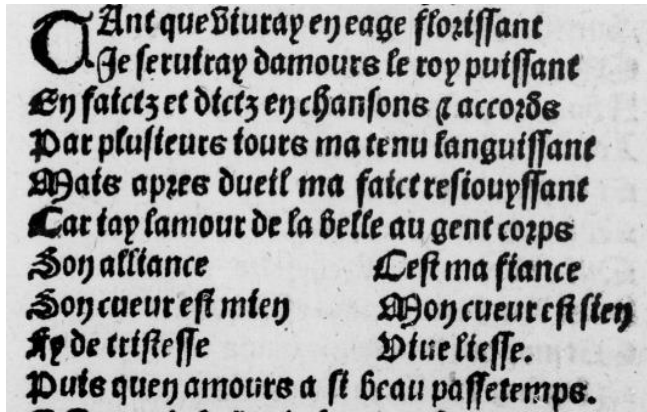 TAnt que viuray en eage florissant
Je seruiray damours le roy puissant
En faictz et dictz en chansons ⁊ accords
Par plusieurs iours ma tenu languissant
Mais apres dueil ma faict resiouyssant
Car iay lamour de la belle au gent corps
Son alliance Cest ma fiance
Son cueur est mien Mon cueur est sien
Fy de tristesse Viue liesse.
Puis quen amours a si beau passetemps.